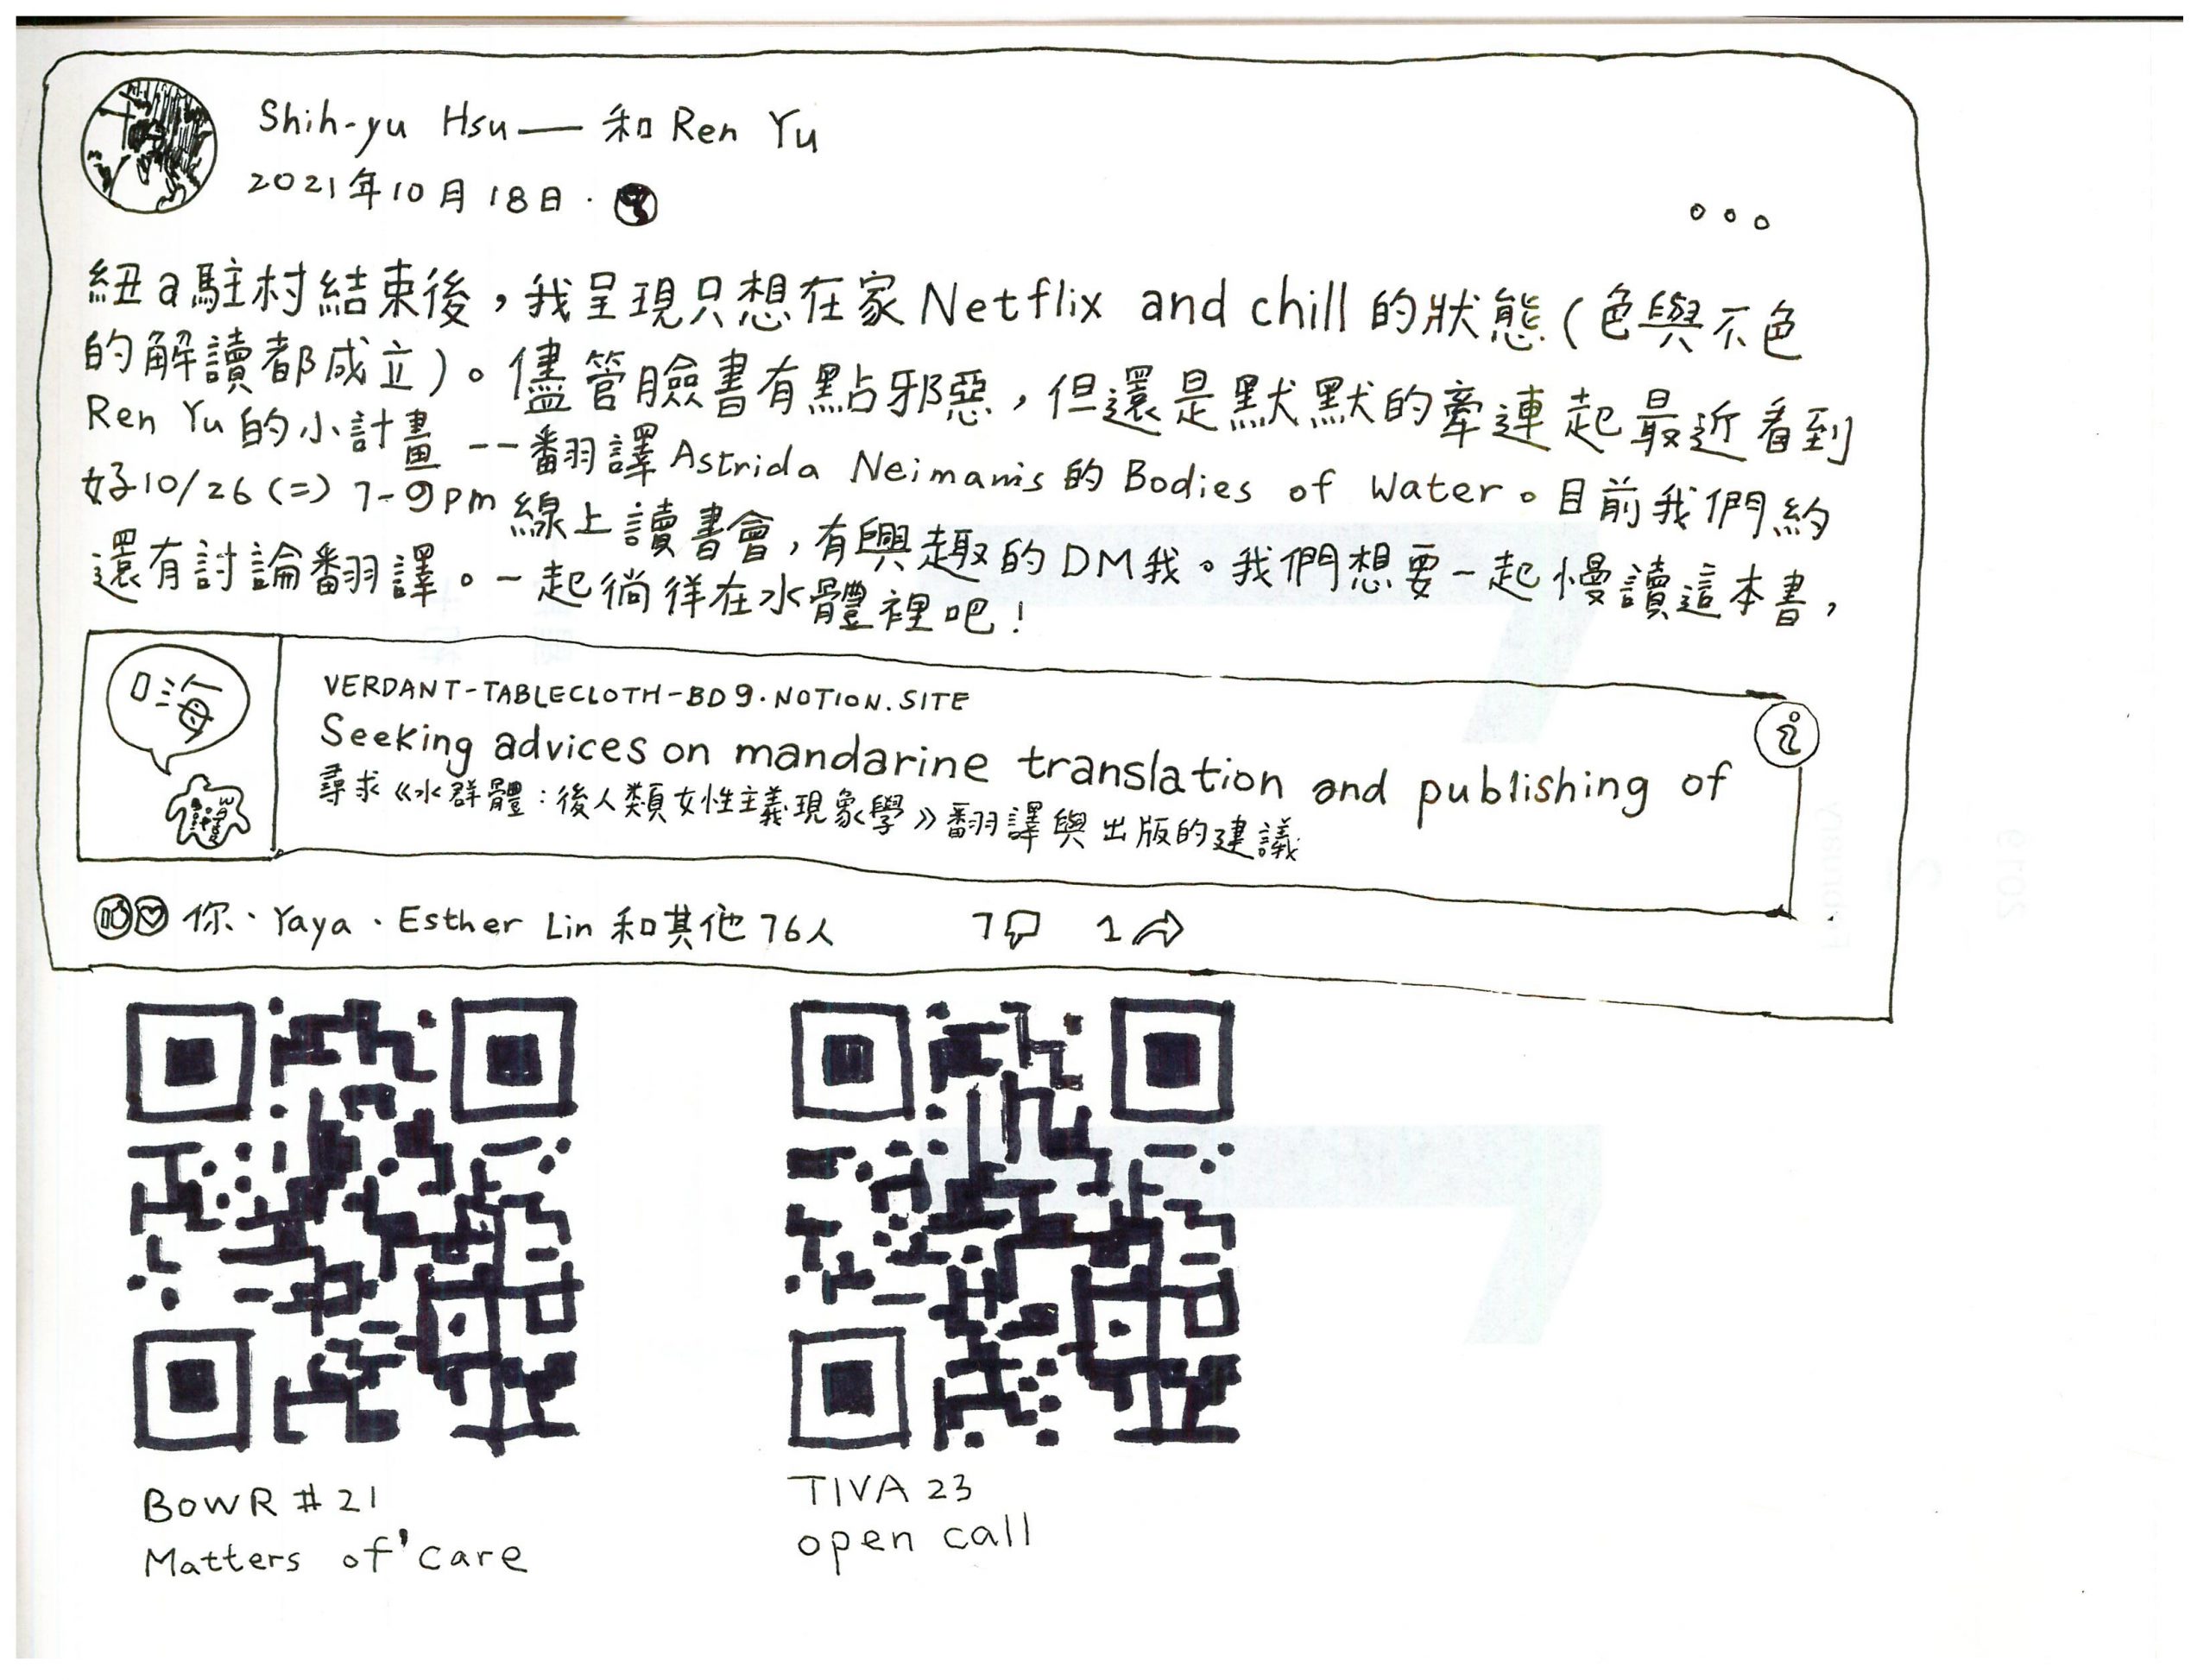 Shih-yu Hsu — 和 Ren Yu
2021年10月18日·
紐a駐村結束後，我呈現只想在家Netflix and chill的狀態(色與不色
的解讀都成立)。儘管臉書有點邪惡，但還是默默的牽連起最近看到
Ren Yu的小計畫--翻譯Astrida Neimanis的Bodies of Water。目前我們約
好10/26(二) 7-9pm線上讀書會，有興趣的DM我。我們想要一起慢讀這本書，
還有討論翻譯。一起徜徉在水體裡吧！
嗨
VERDANT-TABLECLOTH-BD9.NOTION.SITE
Seeking advices on mandarine translation and publishing of
尋求《水群體：後人類女性主義現象學》翻譯與出版的建議
i
你、Yaya、Esther Lin和其他76人 7 1
BOWR #21
Matters of' care
TIVA 23
open call